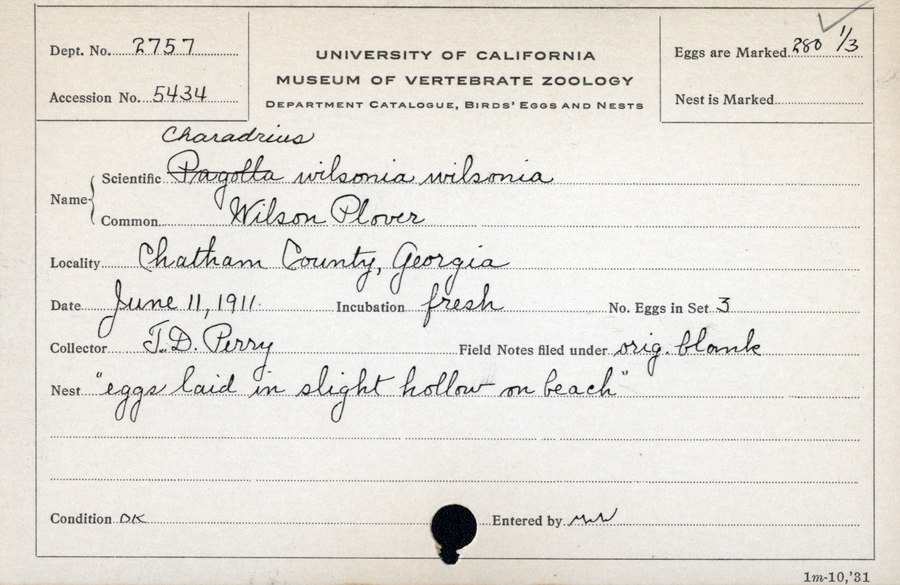 Dept. No. 2757
UNIVERSITY OF CALIFORNIA
MUSEUM OF VERTEBRATE ZOOLOGY
DEPARTMENT CATALOGUE, BIRDS' EGGS AND NESTS
Eggs are Marked 280 1/3
Accession No. 5434
Nest is Marked
Charadrius
Name { Scientific Pagolla wilsonia wilsonia
Common Wilson Plover
Locality Chatham County, Georgia
Date June 11, 1911. Incubation fresh No. Eggs in Set 3
Collector T.D. Perry Field Notes filed under orig. blank
Nest "eggs laid in slight hollow on beach"
Condition OK Entered by
1m-10,'31